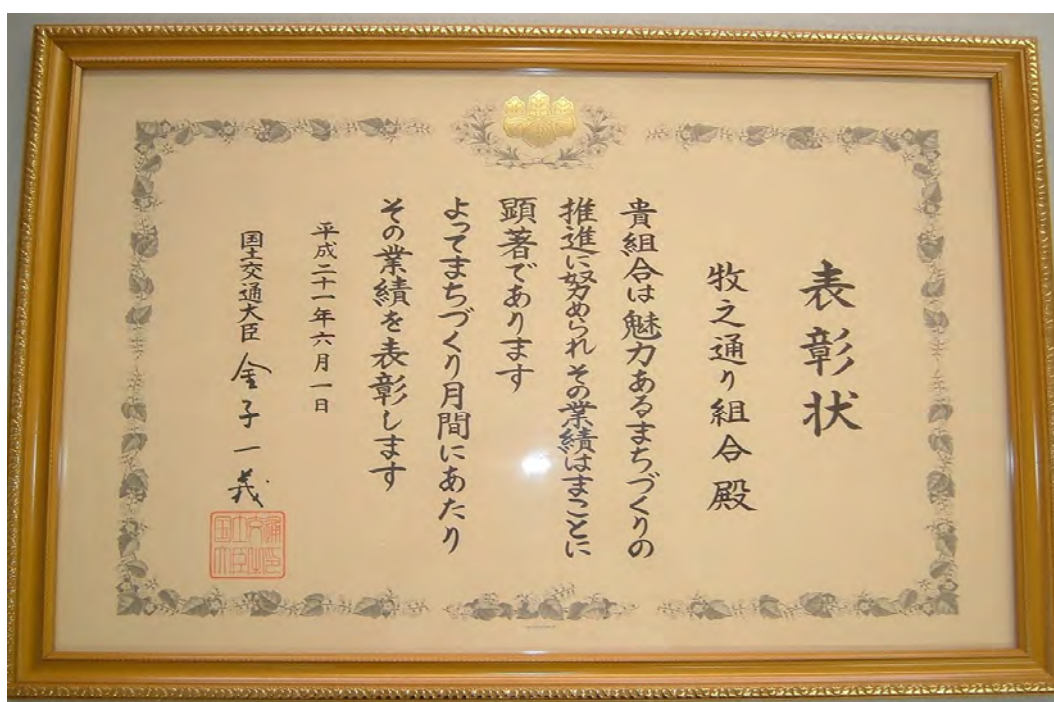 表彰状
牧之通り組合殿
貴組合は魅力あるまちづくりの
推進に努められその業績はまことに
顕著であります
よってまちづくり月間にあたり
その業績を表彰します
平成二十一年六月一日
国土交通大臣 金子一義